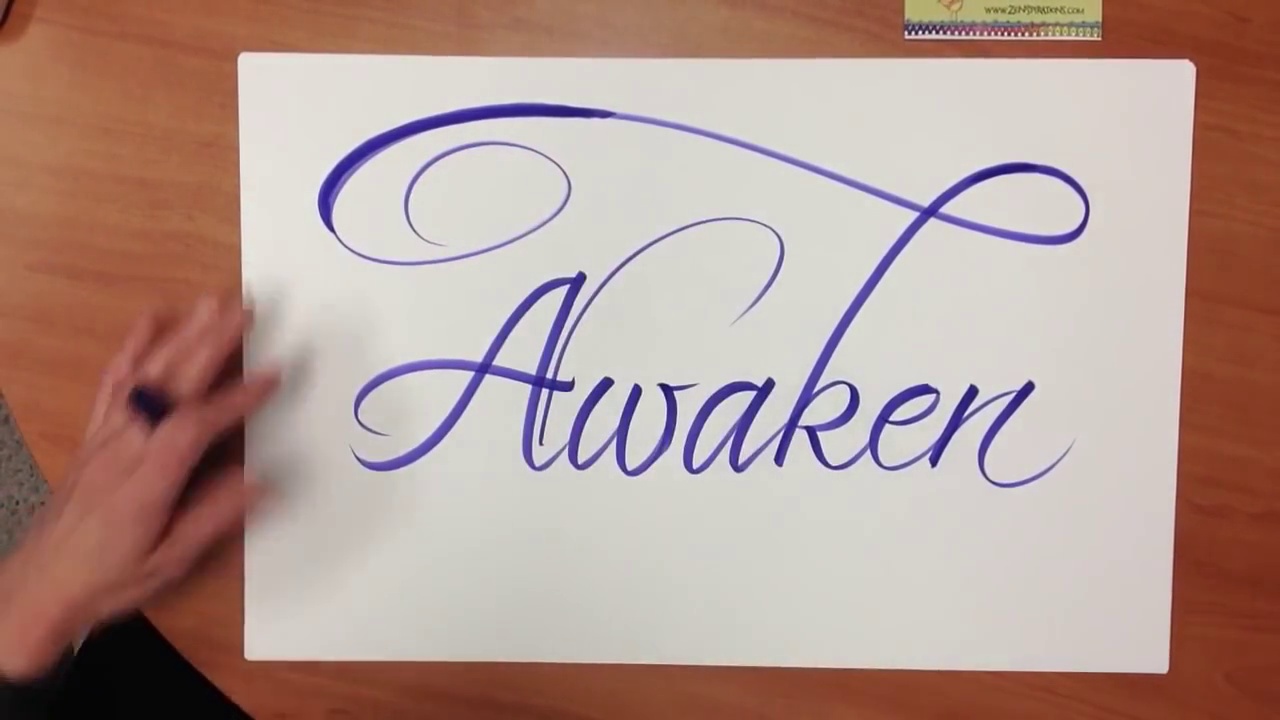 WWW.ZENSPIRATIONS.COM
Awaken